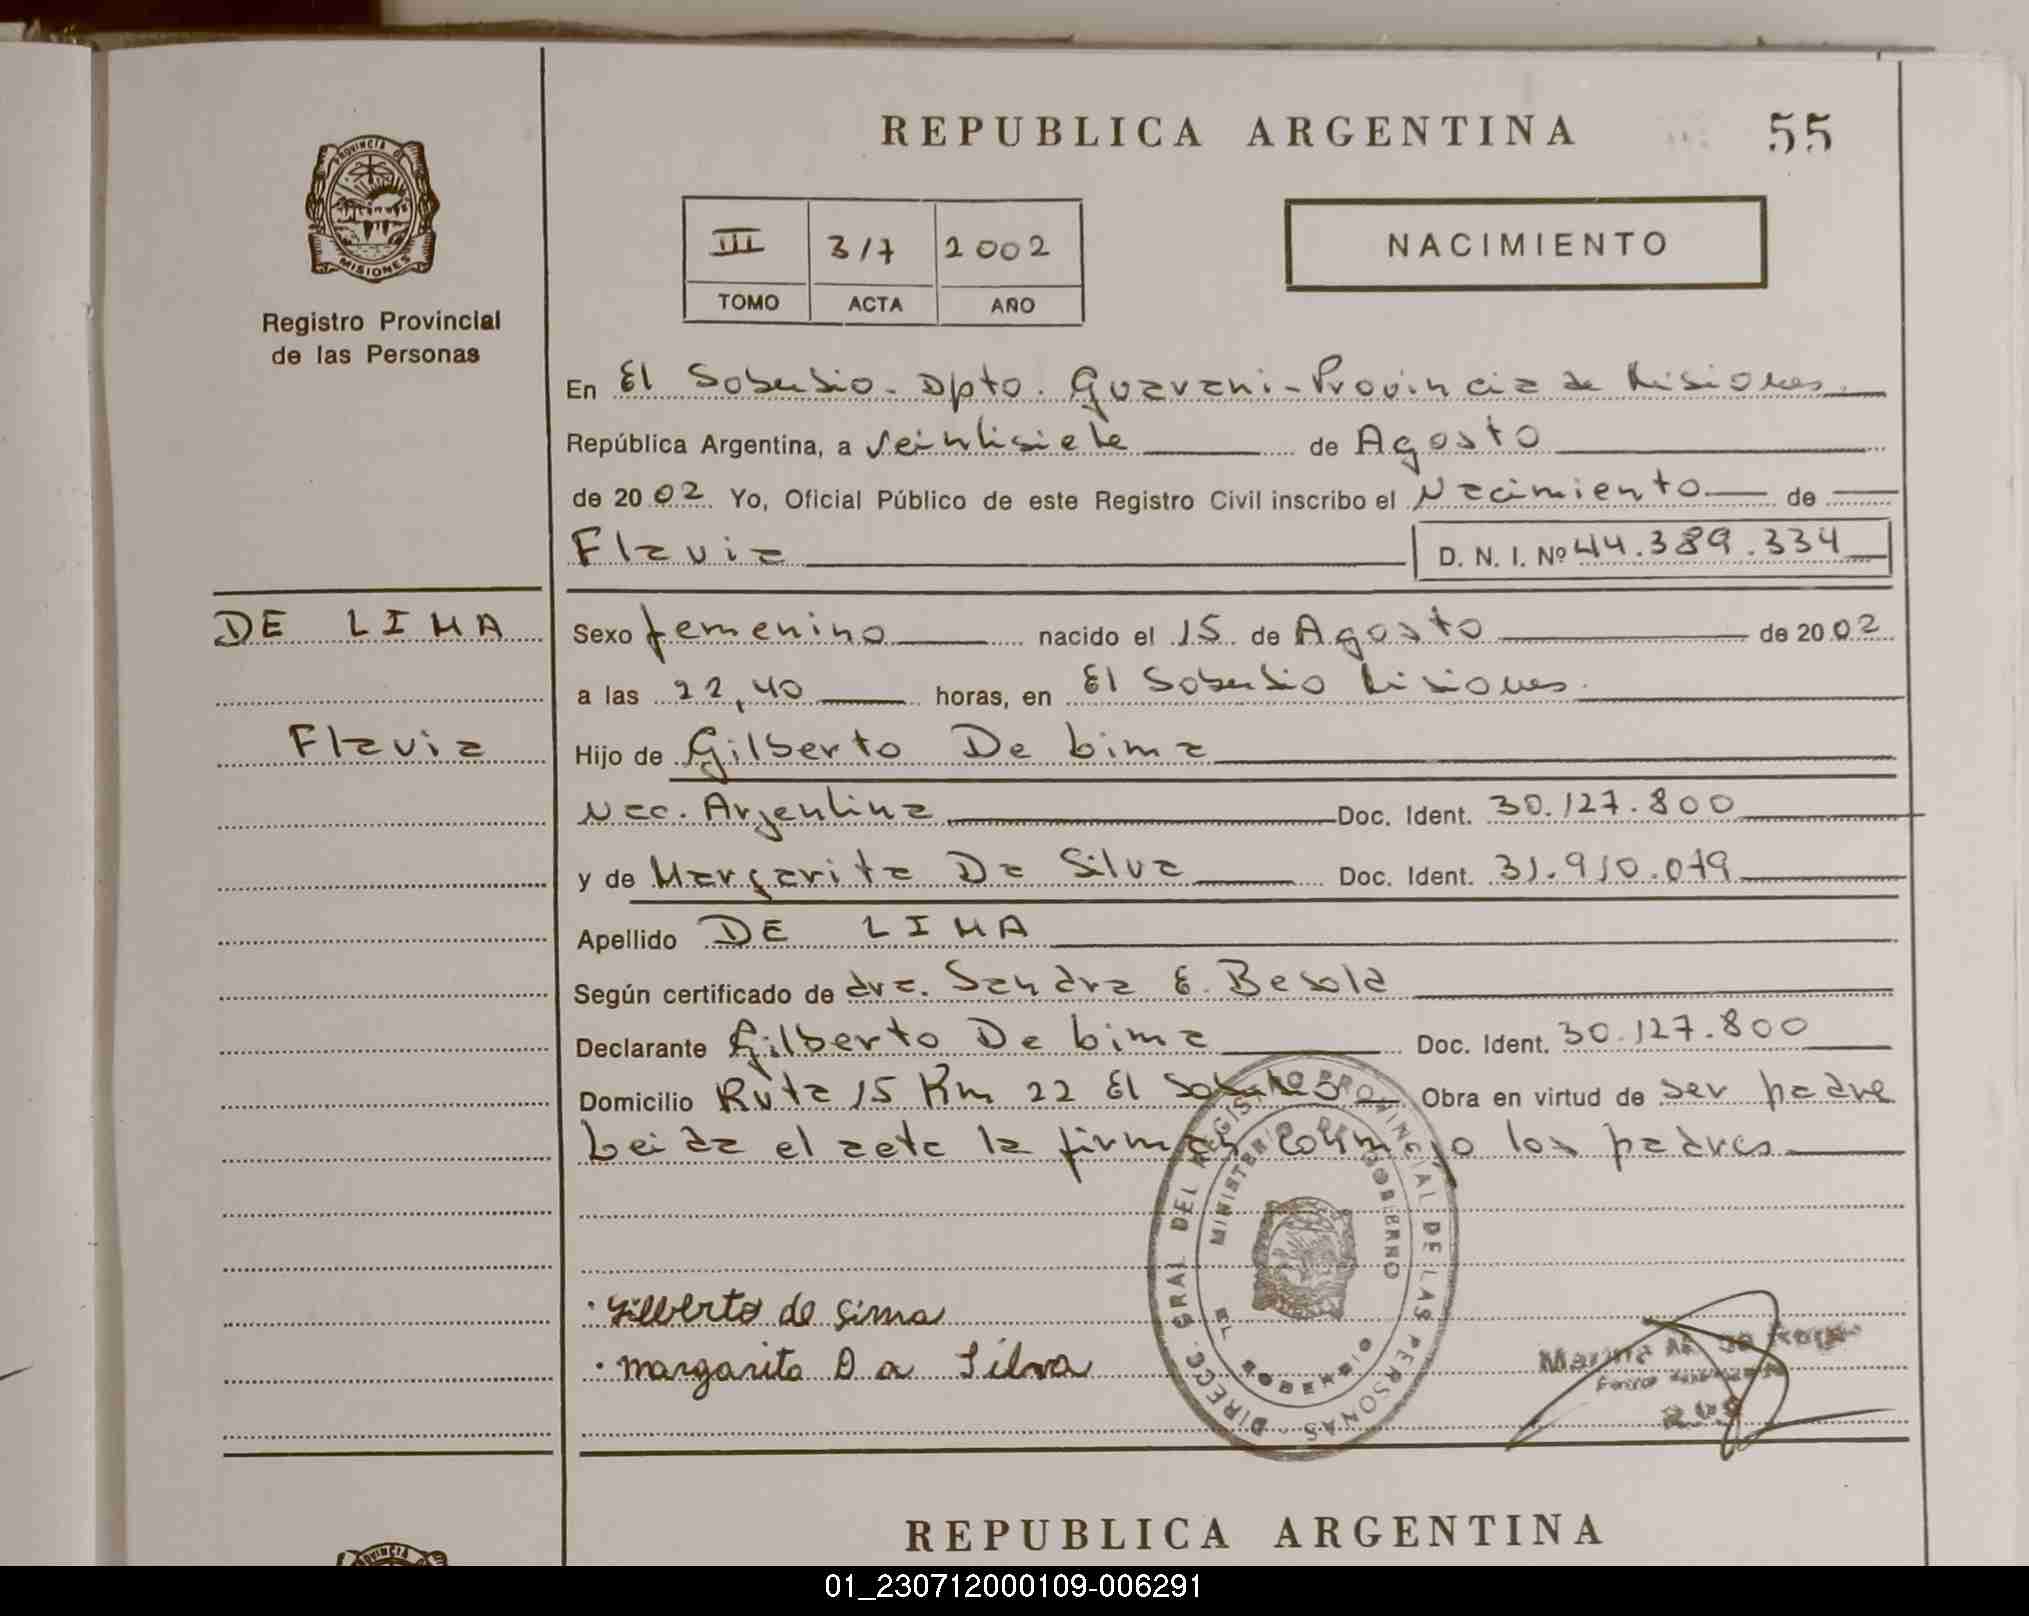 REPUBLICA ARGENTINA 55
PROVINCIA DE MISIONES
Registro Provincial
de las Personas
NACIMIENTO
III 317 2002
TOMO ACTA AÑO
En El Soberbio - Dpto. Guarani - Provincia de Misiones
República Argentina, a Veintisiete de Agosto
de 2002 Yo, Oficial Público de este Registro Civil inscribo el Nacimiento de
Flavia D. N. I. Nº 44.389.334
DE LIMA
Flavia
Sexo femenino nacido el 15 de Agosto de 2002
a las 22,40 horas, en El Soberbio Misiones.
Hijo de Gilberto De Lima
Nac. Argentina Doc. Ident. 30.127.800
y de Margarita Da Silva Doc. Ident. 31.910.079
Apellido DE LIMA
Según certificado de dra. Sandra E. Besold
Declarante Gilberto De Lima Doc. Ident. 30.127.800
Domicilio Ruta 15 Km 22 El Soberbio Obra en virtud de ser padre
Leida el acta la firman conmigo los padres
Gilberto de Lima
Margarita Da Silva
DIRECC. GRAL DEL REGISTRO PROVINCIAL DE LAS PERSONAS
MINISTERIO DE GOBIERNO
EL SOBERBIO
REPUBLICA ARGENTINA
PROVINCIA
01_230712000109-006291